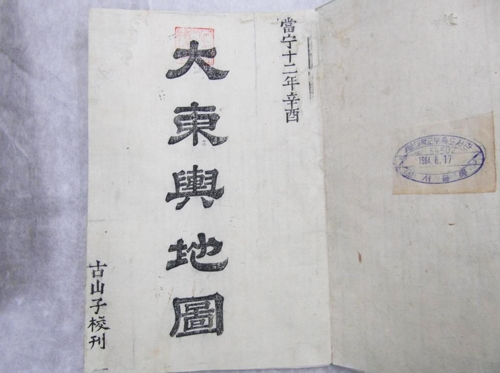 當宁十二年辛酉
大東輿地圖
古山子校刊
1984.6.17